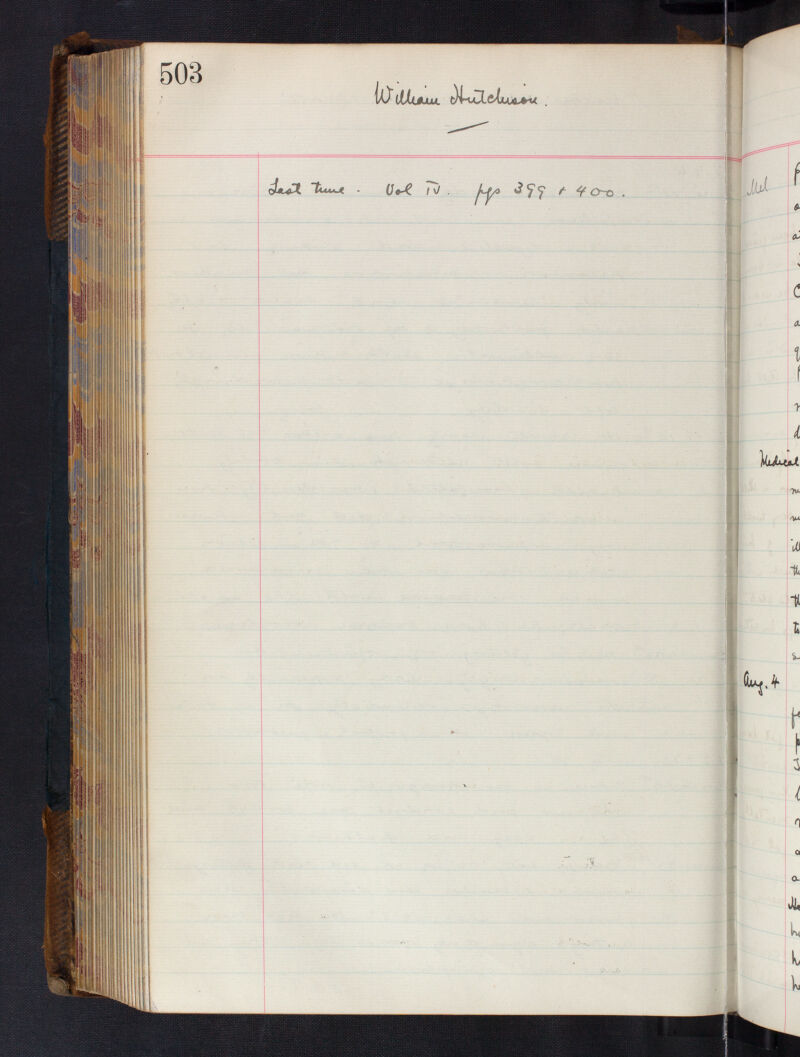 503
William Hutchison.
Last time. Vol IV. pgs 399 & 400.
Mel
Medical
Aug. 4